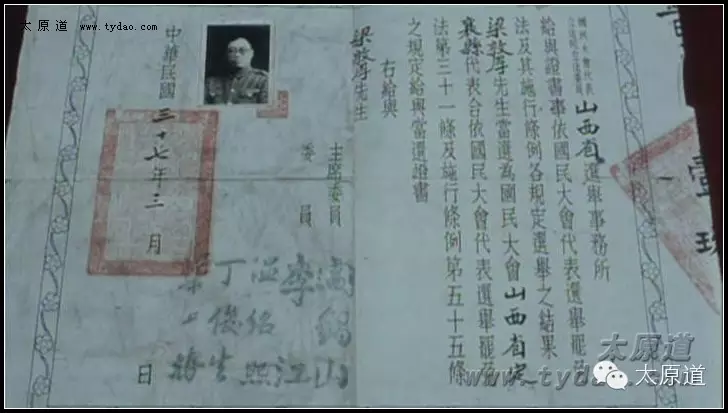 太原道 www.tydao.com
壹
國民大會代表
立法院立法委員
山西省選舉事務所
給與證書事依國民大會代表選舉罷免
法及其施行條例各規定選舉之結果
梁敦厚先生當選為國民大會山西省定
襄縣代表合依國民大會代表選舉罷免
法第三十一條及施行條例第五十五條
之規定給與當選證書
右給與
梁敦厚先生
主席委員 閻錫山
委員 李江
丁俊生
梁上椿
中華民國三十七年三月 日
太原道
www.tydao
太原道